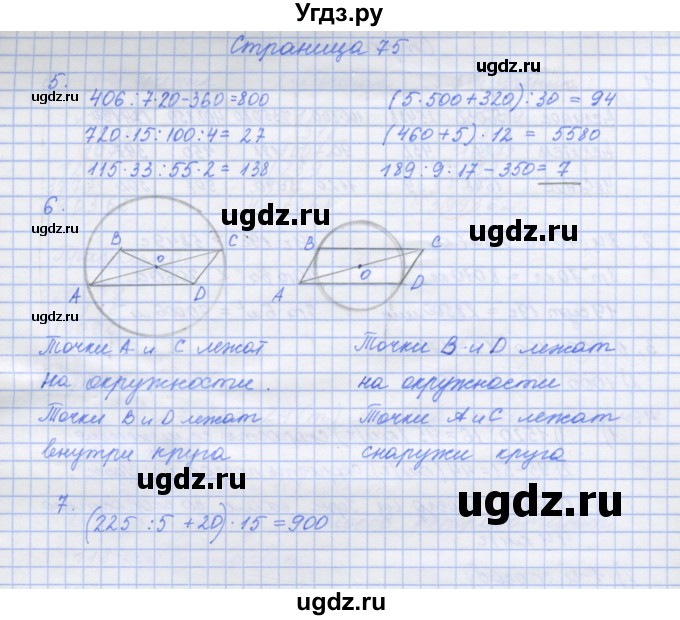 Угдз.ру
Страница 75
5.
406 : 7·20-360=800
(5·500+320):30 = 94
ugdz.ru
720·15:100:4= 27
(460+5)·12 = 5580
ugdz.ru
115·33:55·2=138
189:9·17-350=7
6.
ugdz.ru
ugdz.ru
ugdz.ru
B C O A D
B C O A D
ugdz.ru
ugdz.ru
Точки A и C лежат
Точки B и D лежат
на окружности.
на окружности
Точки B и D лежат
Точки A и C лежат
внутри круга
снаружи круга
ugdz.ru
ugdz.ru
7.
(225 :5 +20)·15=900
ugdz.ru
ugdz.ru